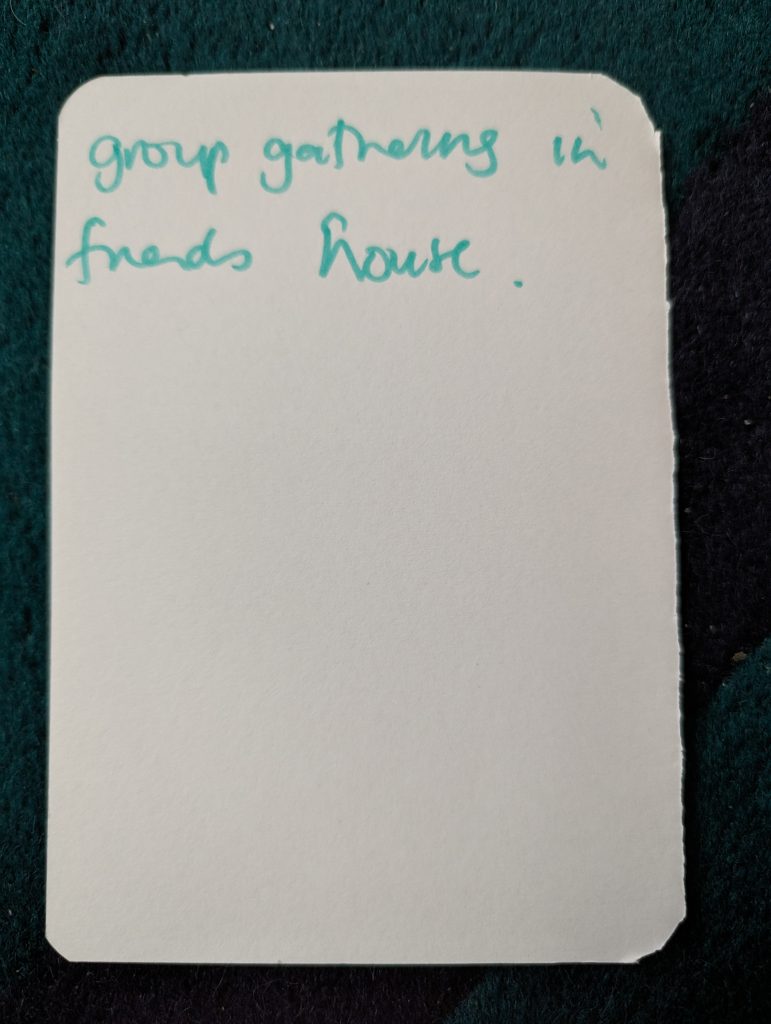 group gathering in
friends house.